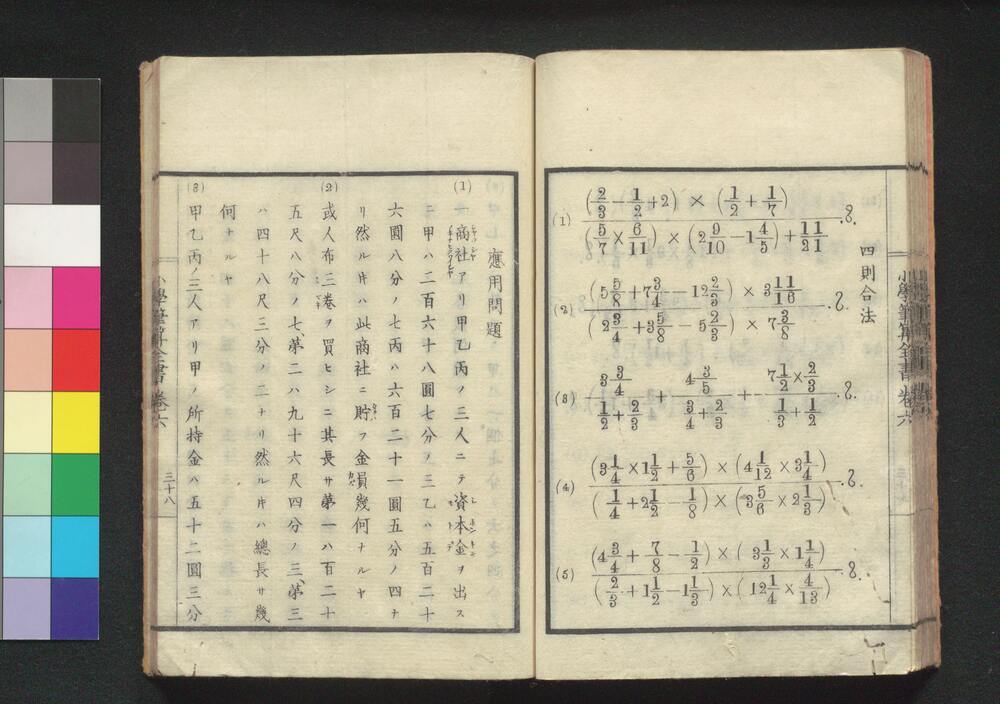 四則合法
(1) (2/3 − 1/2 + 2) × (1/2 + 1/7) / (5/7 × 6/11) × (2 9/10 − 1 4/5) + 11/21 .8.
(2) (5 5/8 + 7 3/4 − 12 2/3) × 3 11/16 / (2 3/4 + 3 5/8 − 5 2/3) × 7 3/8 .8.
(3) 3 3/4 / 1/2 + 2/3 + 4 3/5 / 3/4 + 2/3 + 7 1/2 × 2/3 / 1/3 + 1/2 .8.
(4) (3 1/4 × 1 1/2 + 5/6) × (4 1/12 × 3 1/4) / (1/4 + 2 1/2 − 1/8) × (3 5/6 × 2 1/3) .8.
(5) (4 3/4 + 7/8 − 1/2) × (3 1/3 × 1 1/4) / (2/3 + 1 1/2 − 1 1/3) × (12 1/4 × 4/13) .8.
小學筆算全書 卷六
應用問題
(1) 一商社アリ甲乙丙ノ三人ニテ資本金ヲ出ス
ニ甲ハ二百六十八圓七分ノ三乙ハ五百二十
六圓八分ノ七丙ハ六百二十一圓五分ノ四ナ
リ然ル片ハ此商社ニ貯フ金員幾何ナルヤ
(2) 或人布三卷ヲ買ヒシニ其長サ第一ハ百二十
五尺八分ノ七、第二ハ九十六尺四分ノ三、第三
ハ四十八尺三分ノ二ナリ然ル片ハ總長サ幾
何ナルヤ
(3) 甲乙丙ノ三人アリ甲ノ所持金ハ五十二圓三分
小學筆算全書 卷六
三十八